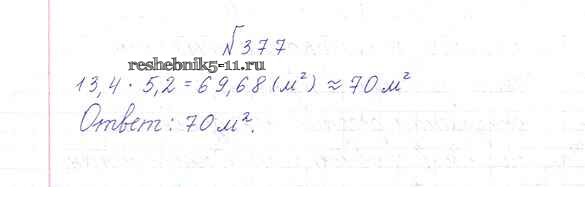 №377
reshebnik5-11.ru
13,4 · 5,2 = 69,68 (м²) ≈ 70 м²
Ответ: 70 м².